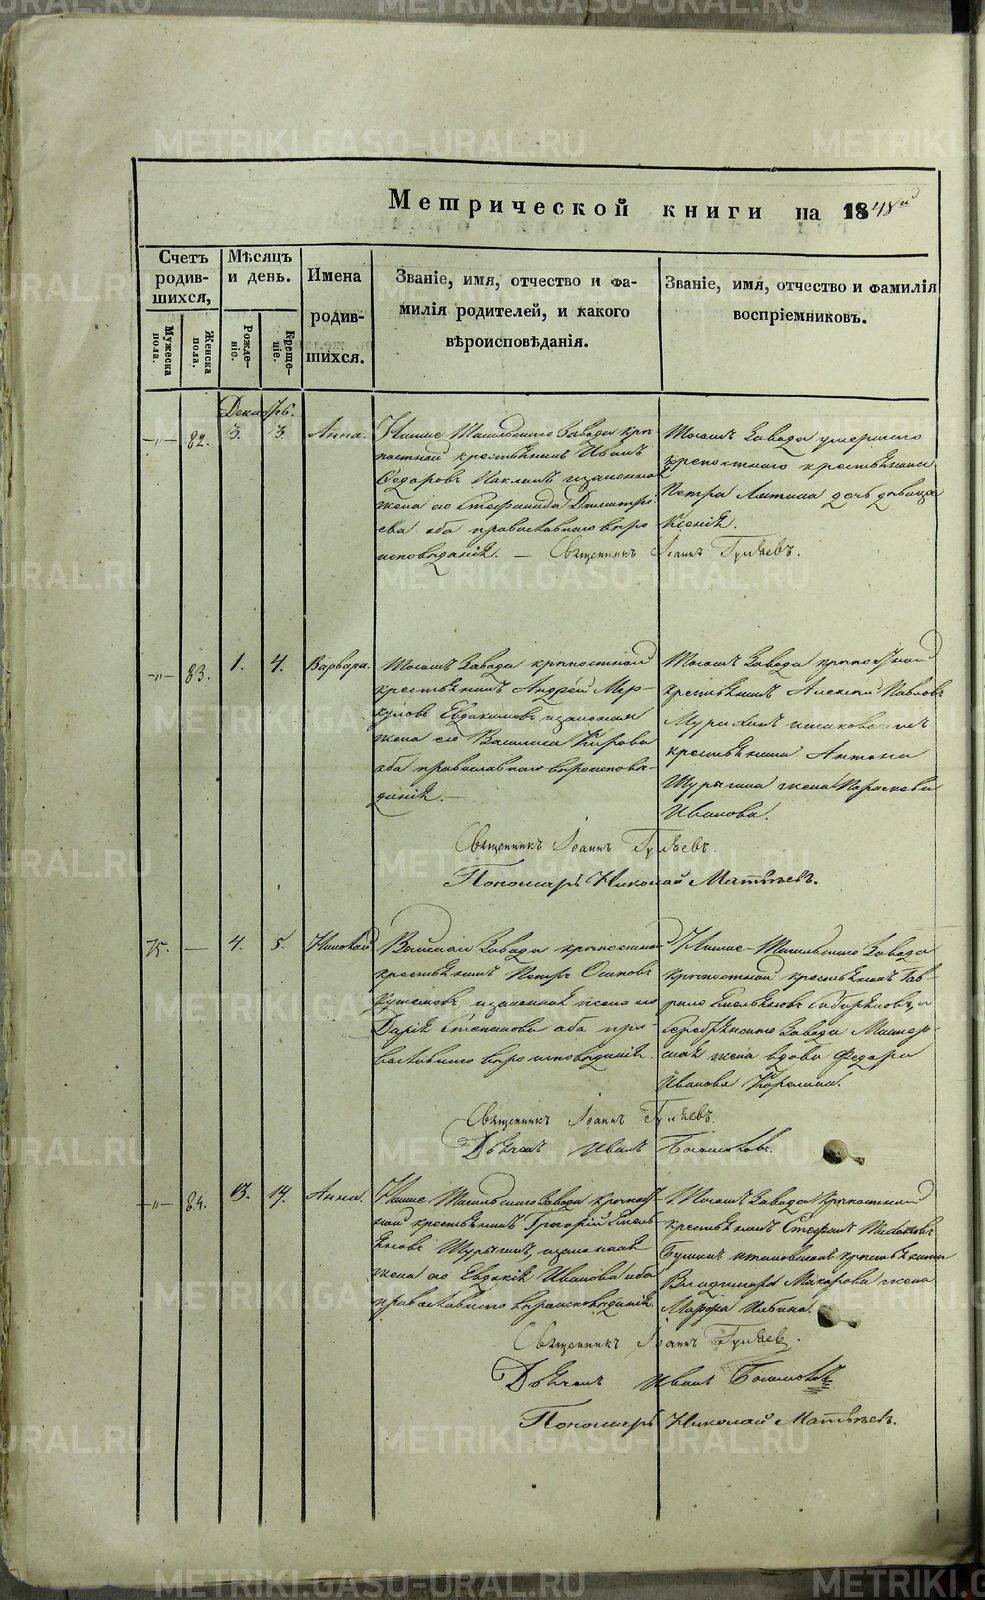 Метрической книги на 1848й
Счетъ родив-шихся,
Мужеска пола.
Женска пола.
Мѣсяцъ и день.
Рожде-ніе.
Креще-ніе.
Имена родив-шихся.
Званіе, имя, отчество и фа-
милія родителей, и какого
вѣроисповѣданія.
Званіе, имя, отчество и фамилія
воспріемниковъ.
Декабрь.
—„— 82. 3. 3. Анна.
Нижне Тагильскаго Завода крѣ-
постной крестьянинъ Иванъ
Ѳедоровъ законная
жена его Стефанида Димитрі-
ева оба православнаго вѣро
исповѣданія. —
Тогожъ Завода умершаго
крепостного крестьянина
Петра дочь девица
Ксенія.
Священникъ Іоаннъ Гуляевъ.
—„— 83. 1. 4. Варвара.
Тогожъ Завода крѣпостной
крестьянинъ Андрей Мер-
куловъ Евдокимовъ и законная
жена его Василиса Кирова
оба православнаго вѣроисповѣ-
данія. —
Тогожъ Завода крѣпостной
крестьянинъ Алексей Павловъ
и таковаго жъ
крестьянина Антона
Шурыгина жена Параскева
Иванова.
Священникъ Іоаннъ Гуляевъ.
Пономарь Николай Матвѣевъ.
75. — 4. 5. Николай
Завода крѣпостной
крестьянинъ Петръ Осиповъ
и законная жена его
Дарія Степанова оба пра-
вославнаго вѣроисповѣданія.
Нижне-Тагильскаго Завода
крѣпостной крестьянинъ Гав-
рило Емельяновъ и
Серебрянского Завода
жена вдова Федора
Иванова
Священникъ Іоаннъ Гуляевъ.
Дьячекъ Иванъ
—„— 84. 13. 14. Анна.
Нижне Тагильскаго Завода крѣпост-
ной крестьянинъ Григорій Емель
яновъ Шурыгинъ, и законная
жена его Евдокія Иванова оба
православнаго вѣроисповѣданія.
Тогожъ Завода крѣпостной
крестьянинъ Стефанъ
и таковаго жъ крестьянина
Владимира Макарова жена
Марфа
Священникъ Іоаннъ Гуляевъ.
Дьячекъ Иванъ
Пономарь Николай Матвѣевъ.
METRIKI.GASO-URAL.RU